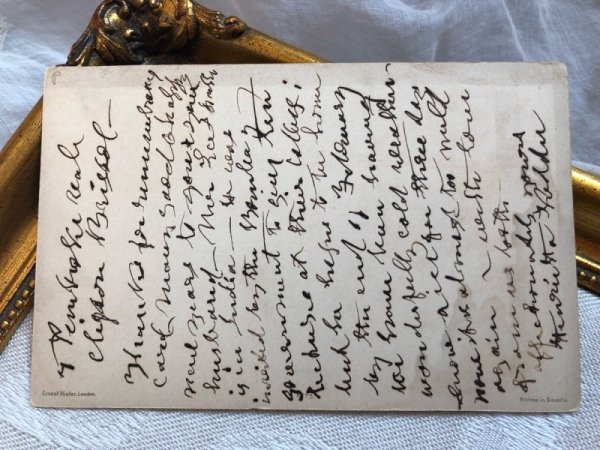 Pembroke Vale
Clifton Bristol —
Thanks for
Card Many good
New Year to you & your
husband — Mr
is in India — he was
invited by the Bombay
government to give ten
lectures at their College;
but he hopes to be home
by the end of February
We have been having
wonderfully cold weather —
snow & ice for three days
now it is almost too mild
again — with love
from us both
affectionately yours
Henrietta
Ernest Nister, London.
Printed in Bavaria.